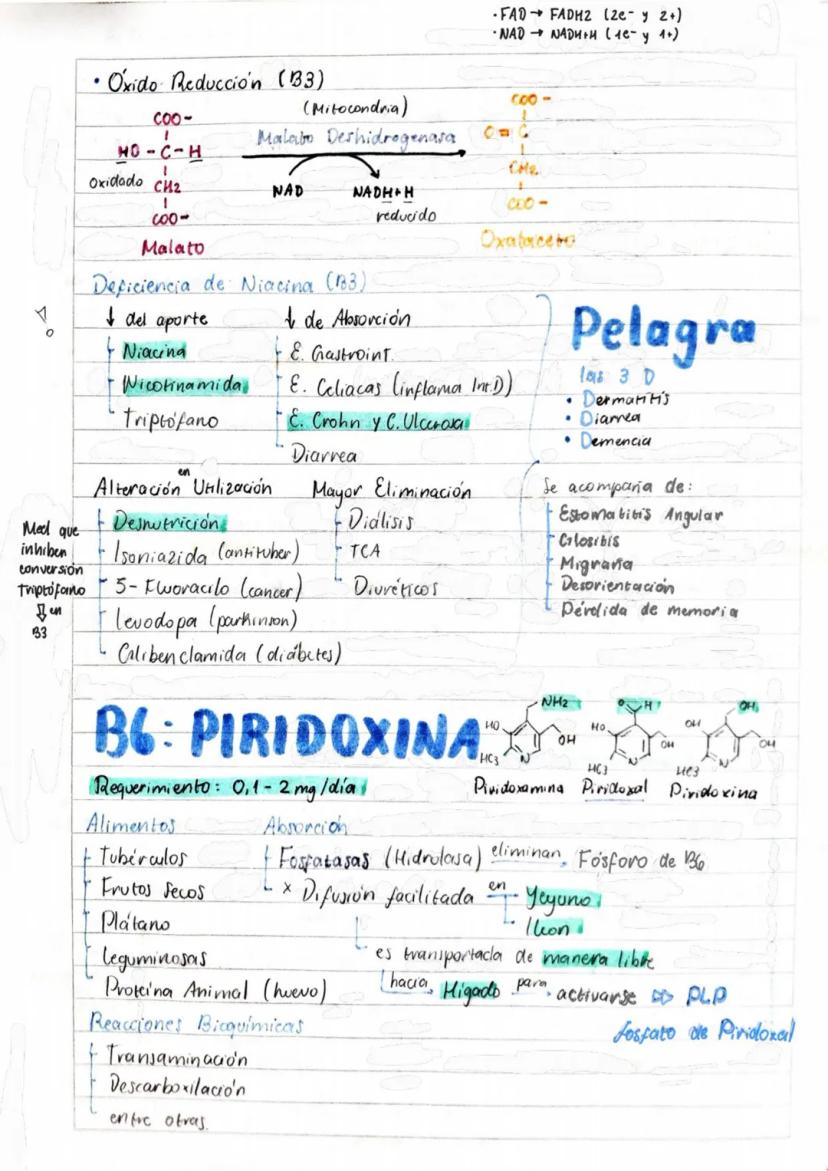 ·FAD → FADH2 (2e- y 2+)
·NAD → NADH+H (1e- y 1+)
• Óxido Reducción (B3)
(Mitocondria)
Malato Deshidrogenasa
COO-
HO - C - H
oxidado
CH2
COO-
Malato
NAD
NADH+H
reducido
COO-
O = C
CH2
COO-
Oxalaceto
Deficiencia de Niacina (B3)
↓ del aporte
Niacina
Nicotinamida
Triptófano
↓ de Absorción
E. Gastroint.
E. Celiacas (inflama Int.D)
E. Crohn y C. Ulcerosa
Diarrea
Pelagra
las 3 D
• Dermatitis
• Diarrea
• Demencia
Alteración en Utilización
Desnutrición
Isoniazida (antituber)
5-Fluoracilo (cancer)
levodopa (parkinson)
Glibenclamida (diabetes)
Med que
inhiben
conversión
Triptófano
⇓ en
B3
Mayor Eliminación
Diálisis
TCA
Diuréticos
Se acompaña de:
Estomatitis Angular
Glositis
Migraña
Desorientación
Pérdida de memoria
B6: PIRIDOXINA
Requerimiento: 0,1 - 2 mg/día
NH2
HO
OH
HC3
N
Piridoxamina
O H
HO
OH
HC3
N
Piridoxal
OH
OH
OH
HC3
N
Piridoxina
Alimentos
Tubérculos
Frutos secos
Plátano
leguminosas
Proteína Animal (huevo)
Absorción
Fosfatasas (Hidrolasa) eliminan Fósforo de B6
x Difusión facilitada en Yeyuno
Ileon
es transportada de manera libre
hacia Hígado para activarse ⇨ PLP
fosfato de Piridoxal
Reacciones Bioquímicas
Transaminación
Descarboxilación
entre otras.